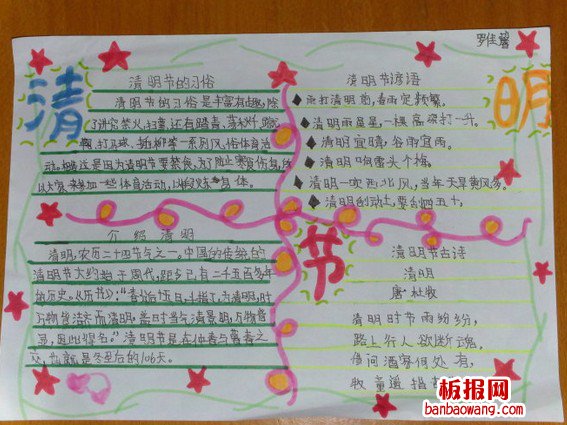 罗佳馨
清
明
节
清明节的习俗
清明节的习俗是丰富有趣,除
了讲究禁火、扫墓,还有踏青、荡秋千、蹴
鞠、打马球、插柳等一系列风俗体育活
动。相传这是因为清明节要禁食,为了防止寒食伤身,所
以大家参加一些体育活动,以锻炼身体。
清明节谚语
雨打清明前,春雨定频繁。
清明雨星星,一棵高粱打一升。
清明宜晴,谷雨宜雨。
清明响雷头个梅。
清明一吹西北风,当年天旱黄风多。
清明刮动土,要刮四五十。
介绍清明
清明,农历二十四节气之一。中国的传统的
清明节大约始于周代,距今已有二千五百多年
的历史。《历书》:"春分后十五日,斗指丁,为清明,时
万物皆洁齐而清明,盖时当气清景明,万物皆
显,因此得名。"清明节是在仲春与暮春之
交,也就是冬至后的106天。
清明节古诗
清明
唐·杜牧
清明时节雨纷纷,
路上行人欲断魂。
借问酒家何处有,
牧童遥指
板报网
banbaowang.com